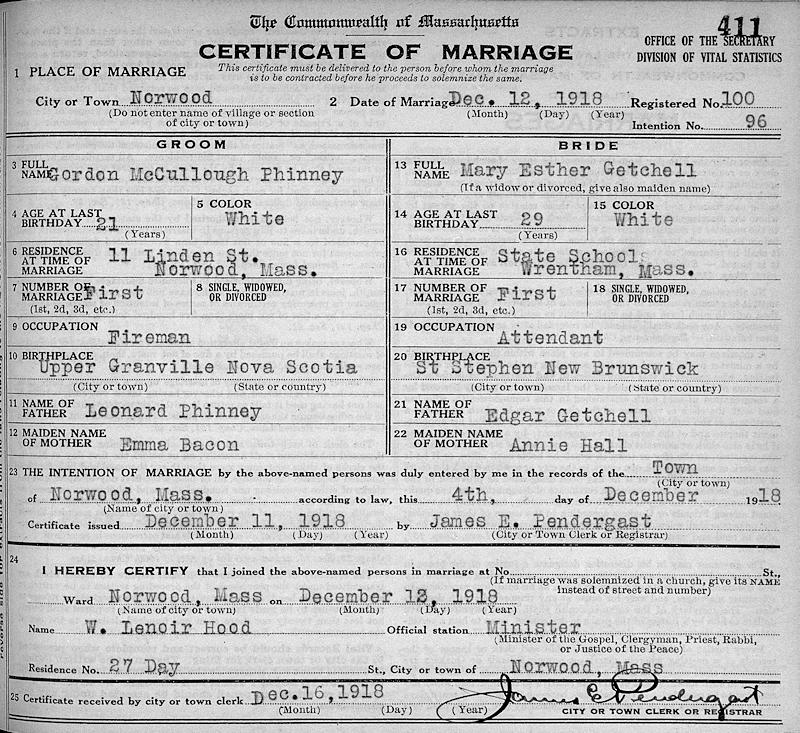 The Commonwealth of Massachusetts
411
OFFICE OF THE SECRETARY
DIVISION OF VITAL STATISTICS
CERTIFICATE OF MARRIAGE
This certificate must be delivered to the person before whom the marriage
is to be contracted before he proceeds to solemnize the same.
1 PLACE OF MARRIAGE
City or Town Norwood 2 Date of Marriage Dec. 12, 1918 Registered No. 100
(Do not enter name of village or section
of city or town)
(Month) (Day) (Year)
Intention No. 96
GROOM BRIDE
3 FULL NAME Gordon McCullough Phinney 13 FULL NAME Mary Esther Getchell
(If a widow or divorced, give also maiden name)
4 AGE AT LAST BIRTHDAY 21 (Years) 5 COLOR White 14 AGE AT LAST BIRTHDAY 29 (Years) 15 COLOR White
6 RESIDENCE AT TIME OF MARRIAGE 11 Linden St. Norwood, Mass. 16 RESIDENCE AT TIME OF MARRIAGE State School Wrentham, Mass.
7 NUMBER OF MARRIAGE First (1st, 2d, 3d, etc.) 8 SINGLE, WIDOWED, OR DIVORCED 17 NUMBER OF MARRIAGE First (1st, 2d, 3d, etc.) 18 SINGLE, WIDOWED, OR DIVORCED
9 OCCUPATION Fireman 19 OCCUPATION Attendant
10 BIRTHPLACE Upper Granville Nova Scotia 20 BIRTHPLACE St Stephen New Brunswick
(City or town) (State or country) (City or town) (State or country)
11 NAME OF FATHER Leonard Phinney 21 NAME OF FATHER Edgar Getchell
12 MAIDEN NAME OF MOTHER Emma Bacon 22 MAIDEN NAME OF MOTHER Annie Hall
23 THE INTENTION OF MARRIAGE by the above-named persons was duly entered by me in the records of the Town
(City or town)
of Norwood, Mass. according to law, this 4th, day of December 1918
(Name of city or town)
Certificate issued December 11, 1918 by James E. Pendergast
(Month) (Day) (Year) (City or Town Clerk or Registrar)
24
I HEREBY CERTIFY that I joined the above-named persons in marriage at No. St.,
(If marriage was solemnized in a church, give its NAME
instead of street and number)
Ward Norwood, Mass on December 12, 1918
(Name of city or town) (Month) (Day) (Year)
Name W. Lenoir Hood Official station Minister
(Minister of the Gospel, Clergyman, Priest, Rabbi,
or Justice of the Peace)
Residence No. 27 Day St., City or town of Norwood, Mass
25 Certificate received by city or town clerk Dec.16,1918 James E Pendergast
(Month) (Day) (Year) CITY OR TOWN CLERK OR REGISTRAR